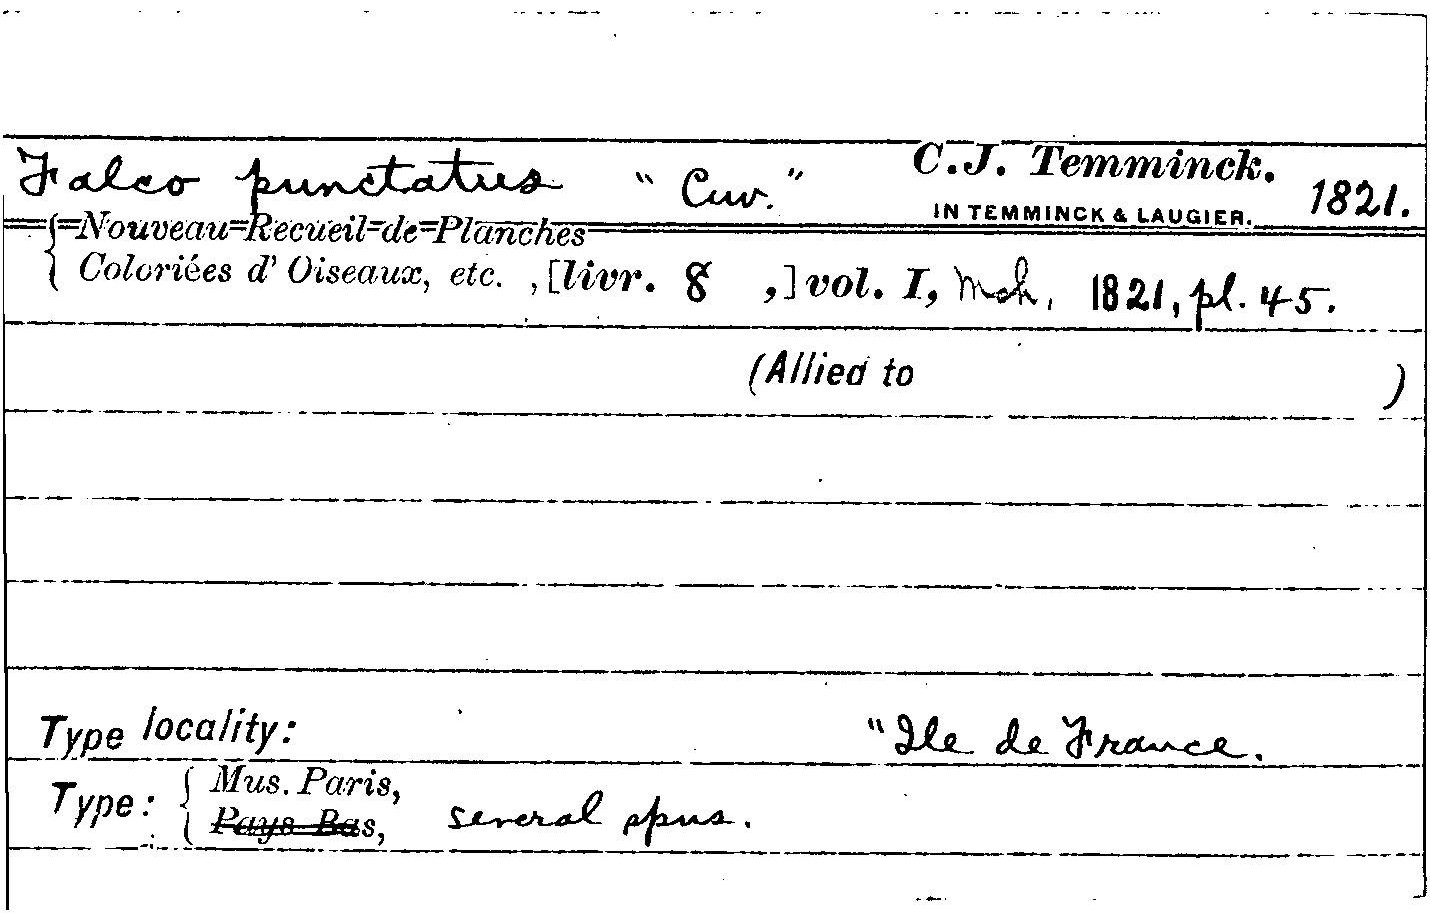 Falco punctatus "Cuv." C.J. Temminck. 1821.
IN TEMMINCK & LAUGIER.
Nouveau Recueil de Planches
Coloriées d' Oiseaux, etc. , [livr. 8 ,] vol. I, Mch. 1821, pl. 45.
(Allied to )
Type locality: "Ile de France.
Type: Mus. Paris,
Pays Bas, several spns.